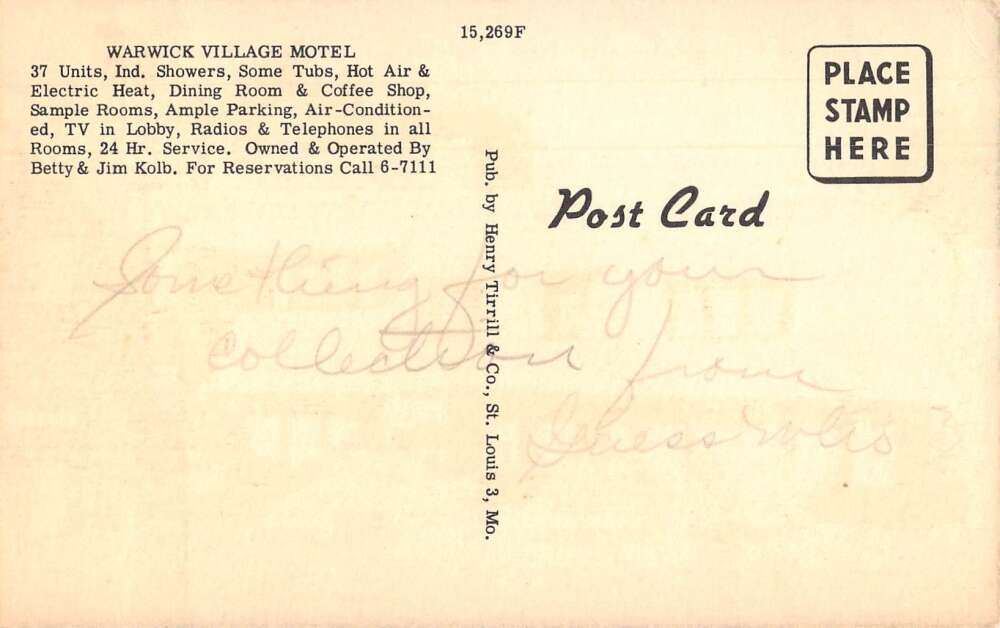 15,269F
WARWICK VILLAGE MOTEL
37 Units, Ind. Showers, Some Tubs, Hot Air &
Electric Heat, Dining Room & Coffee Shop,
Sample Rooms, Ample Parking, Air-Condition-
ed, TV in Lobby, Radios & Telephones in all
Rooms, 24 Hr. Service. Owned & Operated By
Betty & Jim Kolb. For Reservations Call 6-7111
Pub. by Henry Tirrill & Co., St. Louis 3, Mo.
PLACE
STAMP
HERE
Post Card
Something for your
collection from
Guess Who ?